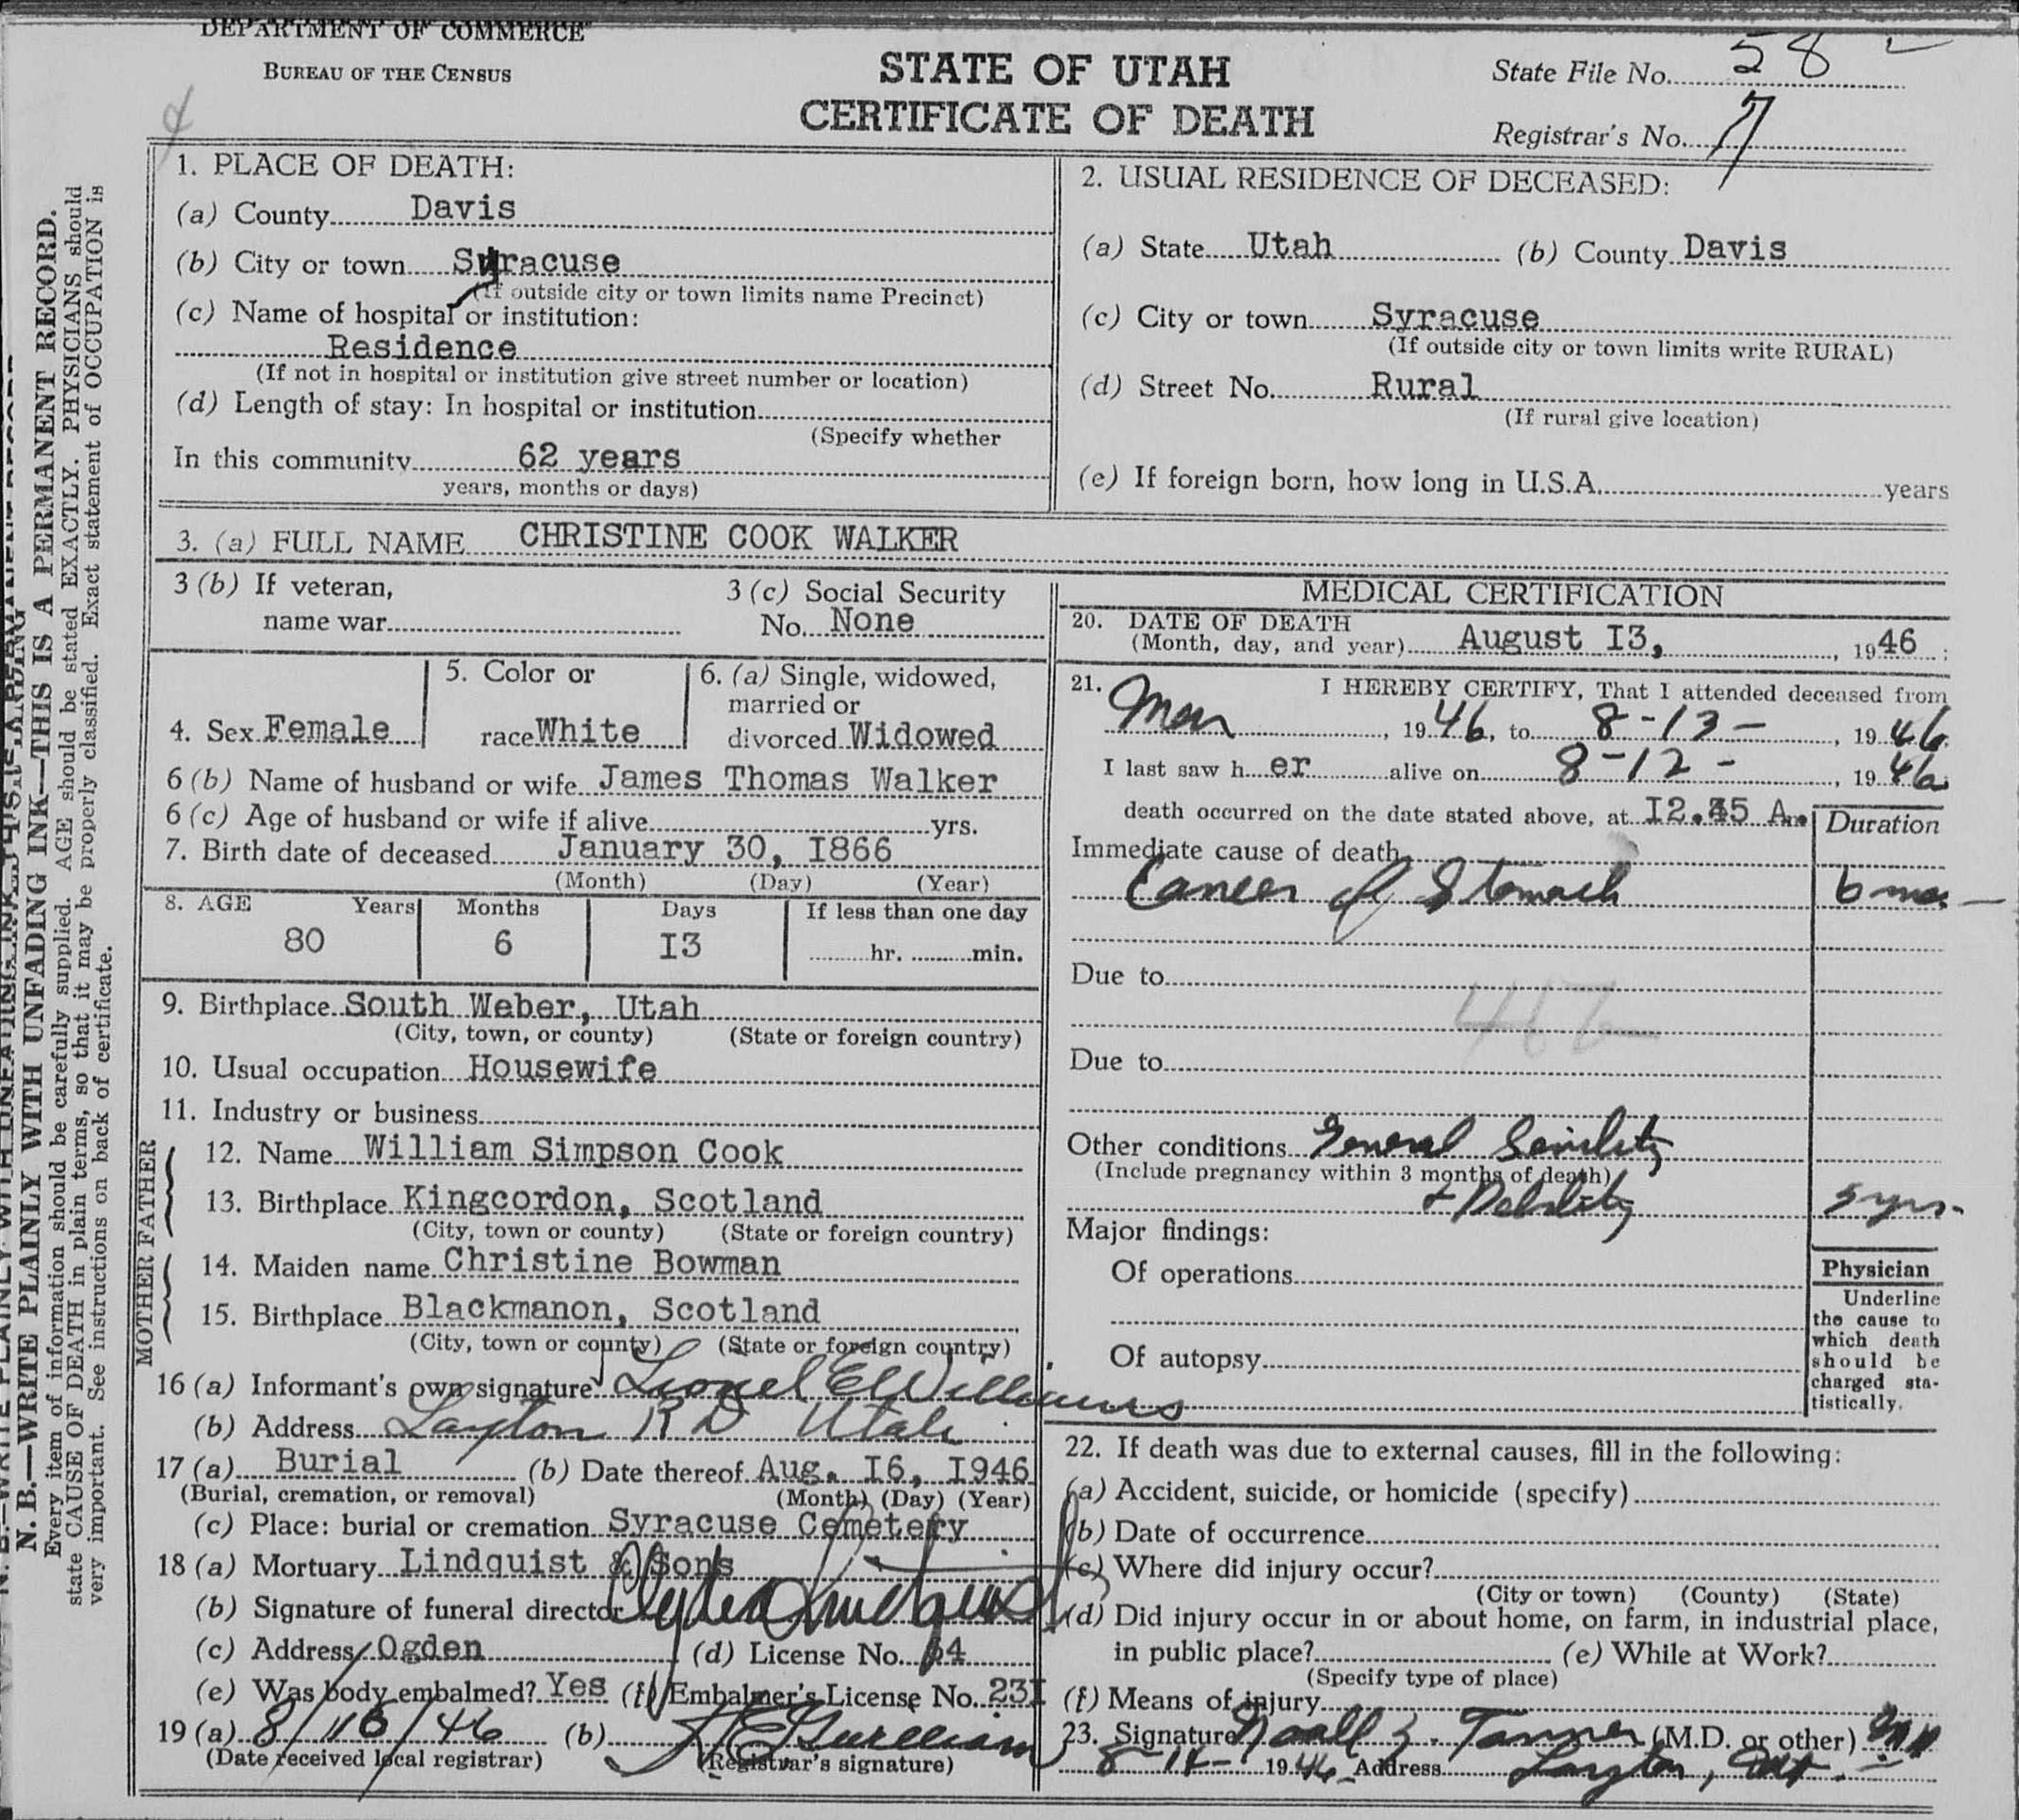 DEPARTMENT OF COMMERCE
BUREAU OF THE CENSUS
STATE OF UTAH
CERTIFICATE OF DEATH
State File No. 58
Registrar's No. 7
1. PLACE OF DEATH:
(a) County Davis
(b) City or town Syracuse
(If outside city or town limits name Precinct)
(c) Name of hospital or institution:
Residence
(If not in hospital or institution give street number or location)
(d) Length of stay: In hospital or institution
(Specify whether
In this community 62 years
years, months or days)
2. USUAL RESIDENCE OF DECEASED:
(a) State Utah (b) County Davis
(c) City or town Syracuse
(If outside city or town limits write RURAL)
(d) Street No. Rural
(If rural give location)
(e) If foreign born, how long in U.S.A. years
3. (a) FULL NAME CHRISTINE COOK WALKER
3 (b) If veteran,
name war
3 (c) Social Security
No. None
4. Sex Female
5. Color or
race White
6. (a) Single, widowed,
married or
divorced Widowed
6 (b) Name of husband or wife James Thomas Walker
6 (c) Age of husband or wife if alive yrs.
7. Birth date of deceased January 30, I866
(Month) (Day) (Year)
8. AGE Years Months Days If less than one day
80 6 I3 hr. min.
9. Birthplace South Weber, Utah
(City, town, or county) (State or foreign country)
10. Usual occupation Housewife
11. Industry or business
FATHER
12. Name William Simpson Cook
13. Birthplace Kingcordon, Scotland
(City, town or county) (State or foreign country)
MOTHER
14. Maiden name Christine Bowman
15. Birthplace Blackmanon, Scotland
(City, town or county) (State or foreign country)
16 (a) Informant's own signature Lionel E Williams
(b) Address Layton R D Utah
17 (a) Burial (b) Date thereof Aug. I6, I946
(Burial, cremation, or removal) (Month) (Day) (Year)
(c) Place: burial or cremation Syracuse Cemetery
18 (a) Mortuary Lindquist & Sons
(b) Signature of funeral director Lindquist
(c) Address Ogden (d) License No. 64
(e) Was body embalmed? Yes (f) Embalmer's License No. 23I
19 (a) 8/16/46 (b)
(Date received local registrar) (Registrar's signature)
MEDICAL CERTIFICATION
20. DATE OF DEATH
(Month, day, and year) August I3, 1946 ;
21. I HEREBY CERTIFY, That I attended deceased from
Mar, 1946, to 8-13-, 1946
I last saw h er alive on 8-12-, 1946
death occurred on the date stated above, at I2.45 A m Duration
Immediate cause of death
Cancer of Stomach 6 mo.
Due to
Due to
Other conditions General Senility
(Include pregnancy within 3 months of death)
+ Debility 5 yrs.
Major findings:
Of operations
Of autopsy
Physician
Underline
the cause to
which death
should be
charged sta-
tistically.
22. If death was due to external causes, fill in the following:
(a) Accident, suicide, or homicide (specify)
(b) Date of occurrence
(c) Where did injury occur?
(City or town) (County) (State)
(d) Did injury occur in or about home, on farm, in industrial place,
in public place? (e) While at Work?
(Specify type of place)
(f) Means of injury
23. Signature Noall Z. Tanner (M.D. or other) MD
8-14- 1946 Address Layton, Ut.
N. B.—WRITE PLAINLY WITH UNFADING INK—THIS IS A PERMANENT RECORD.
Every item of information should be carefully supplied. AGE should be stated EXACTLY. PHYSICIANS should
state CAUSE OF DEATH in plain terms, so that it may be properly classified. Exact statement of OCCUPATION is
very important. See instructions on back of certificate.